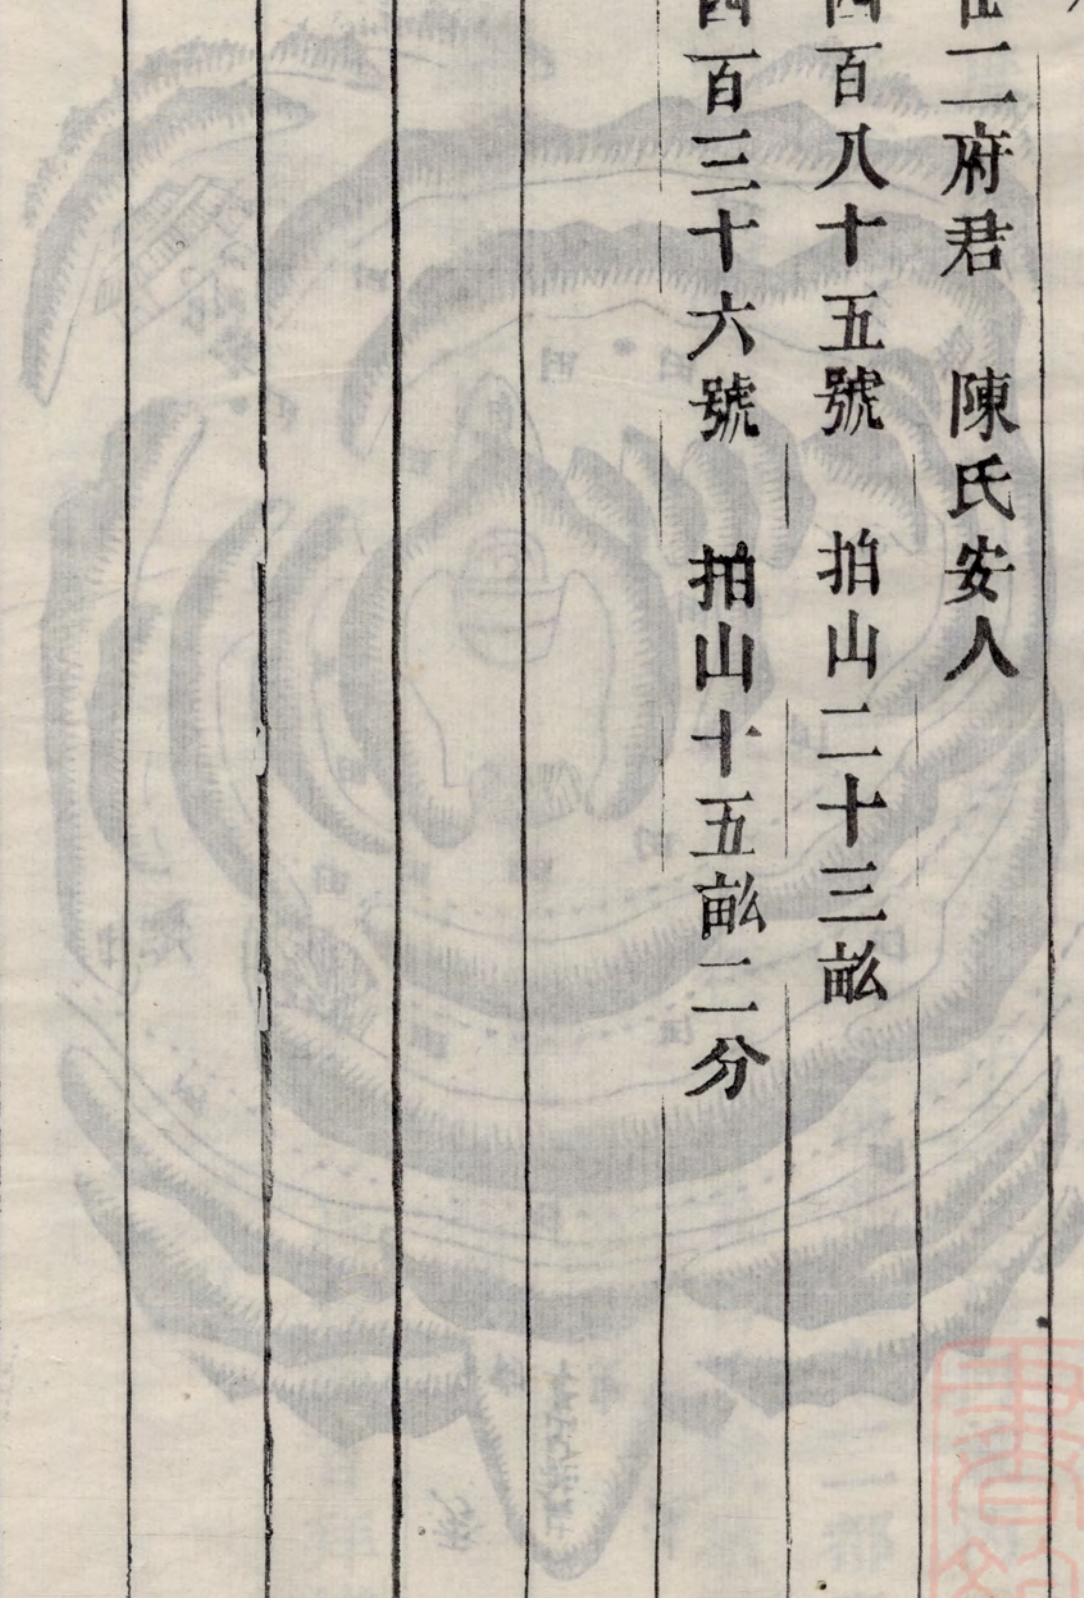 二府君 陳氏安人
四百八十五號 拍山二十三畆
四百三十六號 拍山十五畆二分